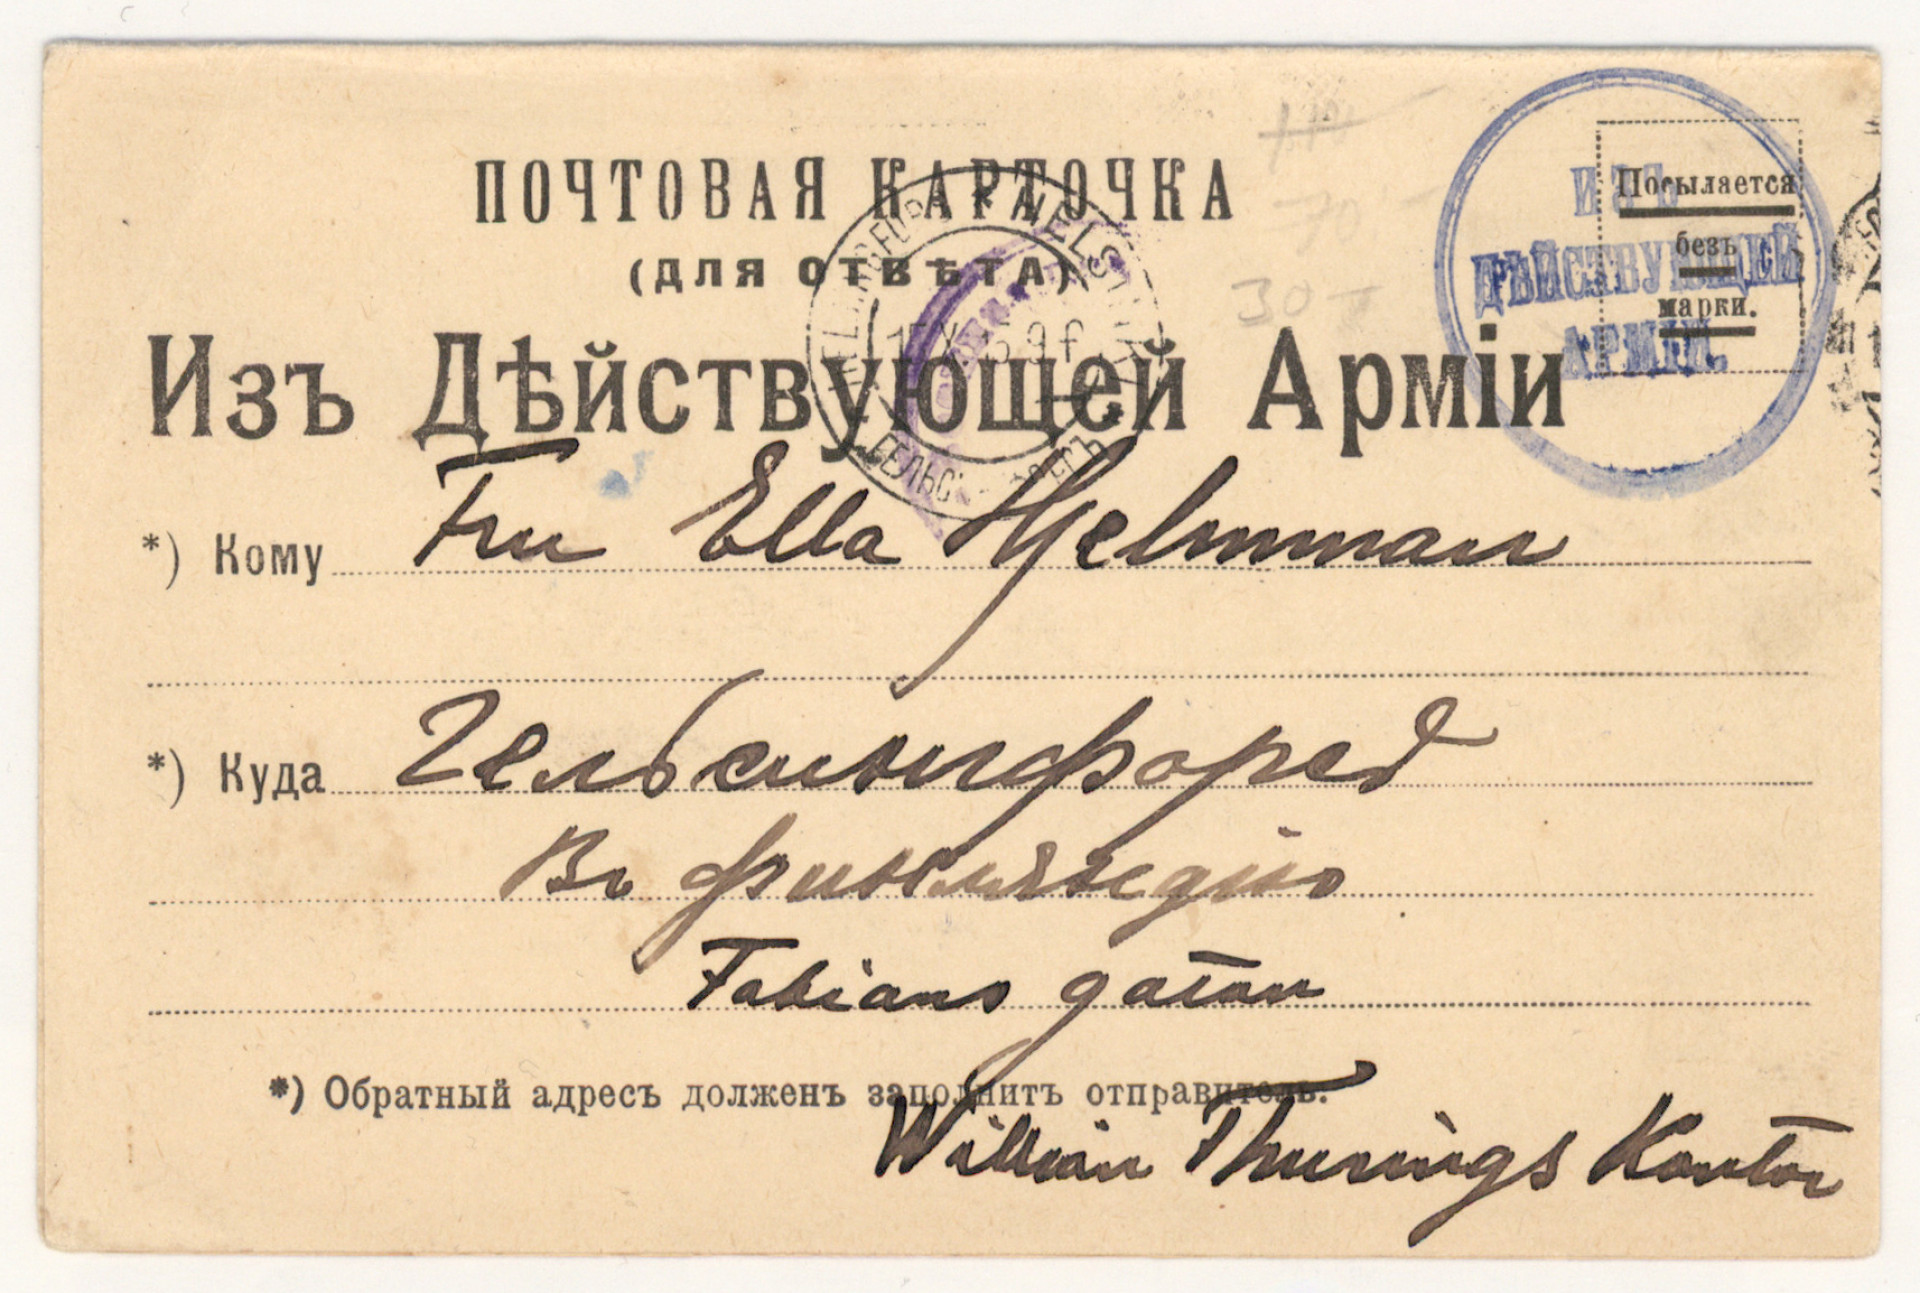 ПОЧТОВАЯ КАРТОЧКА
(ДЛЯ ОТВѢТА)
Изъ Дѣйствующей Арміи
Посылается
безъ
марки.
ИЗЪ
ДѢЙСТВУЮЩЕЙ
АРМІИ.
HELSINGFORS HELSINKI
70
30
*) Кому Fru Ella Hjelmman
*) Куда Гельсингфорсъ
Въ Финляндію
Fabiansgatan
*) Обратный адресъ долженъ заполнить отправитель.
William Thurings Kontor